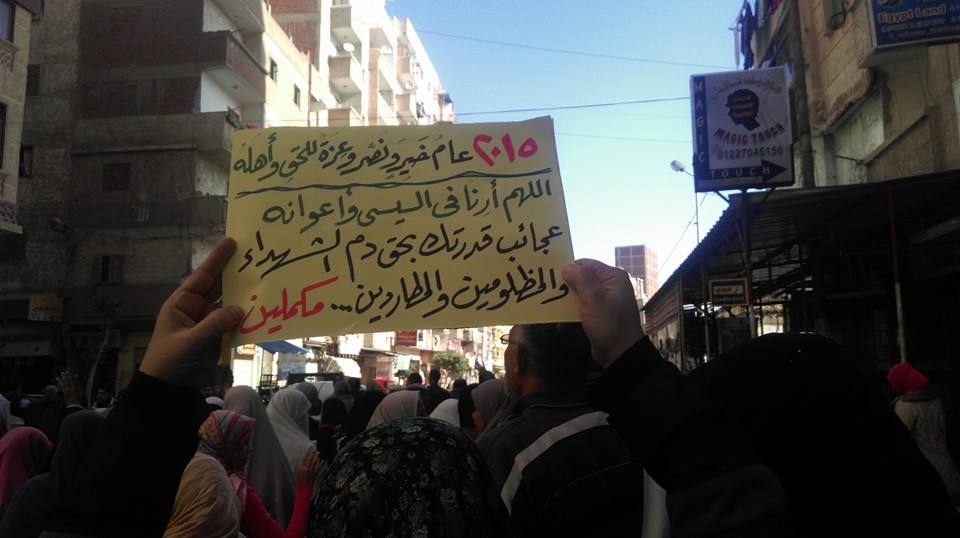 ٢٠١٥ عام خير ونصر وعزة للحق وأهله
اللهم أرنا فى السيسى وأعوانه
عجائب قدرتك بحق دم الشهداء
والمظلومين والمطاردين ... مكملين
Egypt Land
MAGIC TOUCH
01227046156
MAGIC
TOUCH